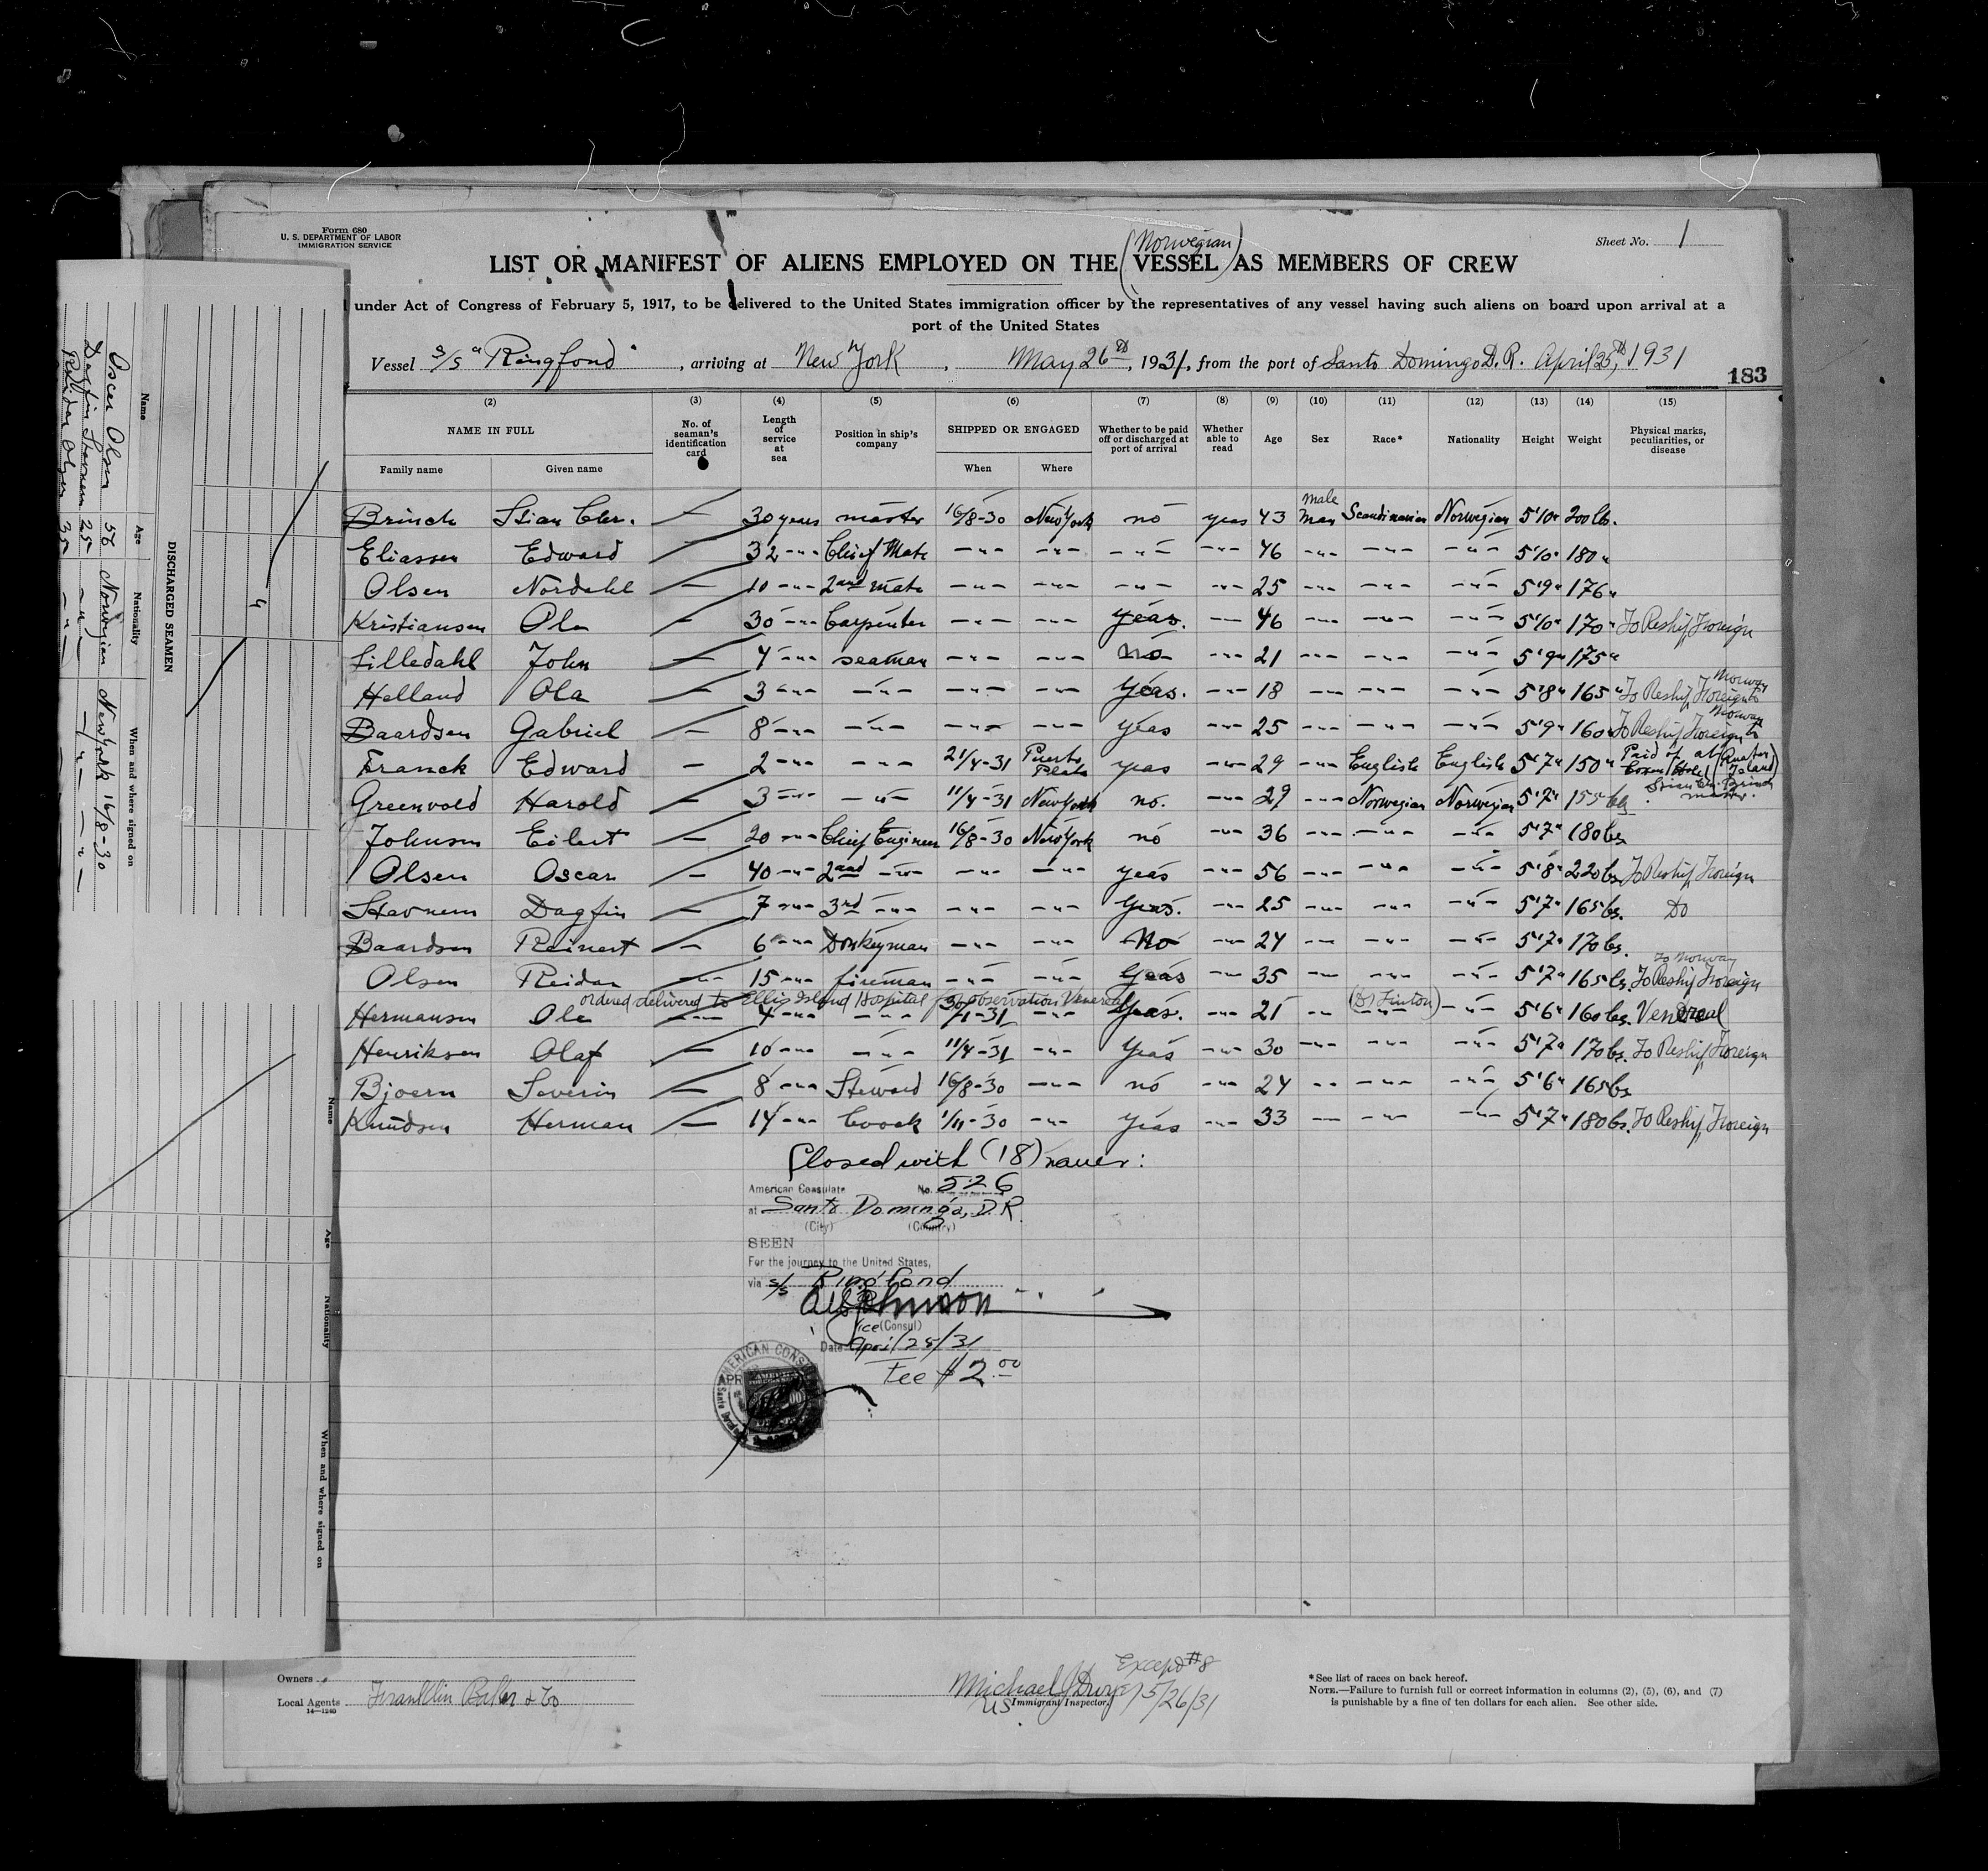 Form 680
U. S. DEPARTMENT OF LABOR
IMMIGRATION SERVICE
Sheet No. 1
(Norwegian)
LIST OR MANIFEST OF ALIENS EMPLOYED ON THE VESSEL AS MEMBERS OF CREW
under Act of Congress of February 5, 1917, to be delivered to the United States immigration officer by the representatives of any vessel having such aliens on board upon arrival at a
port of the United States
Vessel s/s "Ringfond", arriving at New York, May 26th, 1931, from the port of Santo Domingo D.R. April 25th, 1931
183
(2) (3) (4) (5) (6) (7) (8) (9) (10) (11) (12) (13) (14) (15)
NAME IN FULL No. of seaman's identification card Length of service at sea Position in ship's company SHIPPED OR ENGAGED Whether to be paid off or discharged at port of arrival Whether able to read Age Sex Race* Nationality Height Weight Physical marks, peculiarities, or disease
Family name Given name When Where
male
Brinch Stian Chr. — 30 years master 16/8-30 New York no yeas 43 man Scandinavian Norwegian 5'10" 200 lb.
Eliassen Edward — 32 -"- Chief Mate -"- -"- -"- -"- 46 -"- -"- -"- 5'10" 180 "
Olsen Nordahl — 10 -"- 2nd mate -"- -"- -"- -"- 25 -"- -"- -"- 5'9" 176 "
Kristiansen Ola — 30 -"- Carpenter -"- -"- yeas. -"- 46 -"- -"- -"- 5'10" 170 " To Reship Foreign
Lilledahl John — 4 -"- seaman -"- -"- no -"- 21 -"- -"- -"- 5'9" 175 "
Helland Ola — 3 -"- -"- -"- -"- yeas. -"- 18 -"- -"- -"- 5'8" 165 " To Reship Foreign to Norway
Baardsen Gabriel — 8 -"- -"- -"- -"- yeas -"- 25 -"- -"- -"- 5'9" 160 " To Reship Foreign to Norway
Franck Edward — 2 -"- -"- 21/4-31 Puerto Plata yeas -"- 29 -"- English English 5'7" 150 " Paid of at (Ruatan Island)
Greenvold Harold — 3 -"- -"- 11/4-31 New York no. -"- 29 -"- Norwegian Norwegian 5'7" 155 lbs Brinch master.
Johnsen Eilert — 20 -"- Chief Engineer 16/8-30 New York no -"- 36 -"- -"- -"- 5'7" 180 lbs
Olsen Oscar — 40 -"- 2nd -"- -"- -"- yeas -"- 56 -"- -"- -"- 5'8" 220 lbs To Reship Foreign
Stavnem Dagfin — 7 -"- 3rd -"- -"- -"- Yeas. -"- 25 -"- -"- -"- 5'7" 165 lbs. Do
Baardsen Reinert — 6 -"- Donkeyman -"- -"- No -"- 24 -"- -"- -"- 5'7" 170 lbs.
Olsen Reidar — 15 -"- fireman -"- -"- Yeas -"- 35 -"- -"- -"- 5'7" 165 lbs. To Reship Foreign to Norway
ordered delivered to Ellis Island Hospital for observation Venereal (Dr Linton)
Hermansen Ole — 4 -"- -"- 30/1-31 -"- Yeas. -"- 21 -"- -"- -"- 5'6" 160 lbs. Venereal
Henriksen Olaf — 10 -"- -"- 11/4-31 -"- Yeas -"- 30 -"- -"- -"- 5'7" 170 lbs. To Reship Foreign
Bjoern Severin — 8 -"- Steward 16/8-30 -"- no -"- 24 -"- -"- -"- 5'6" 165 lbs
Knudsen Herman — 14 -"- Coock 1/11-30 -"- yeas -"- 33 -"- -"- -"- 5'7" 180 lbs. To Reship Foreign
Closed with (18) names:
American Consulate No. 526
at Santo Domingo, D.R.
(City) (Country)
SEEN
For the journey to the United States,
via s/s Ringfond
Johnson
Vice (Consul)
Date April 25/31
Fee $2.00
AMERICAN CONS
APR
Owners
Local Agents Franklin Baker & Co
14—1240
Except #8
Michael J Dwyer 5/26/31
US Immigrant Inspector.
*See list of races on back hereof.
NOTE.—Failure to furnish full or correct information in columns (2), (5), (6), and (7)
is punishable by a fine of ten dollars for each alien. See other side.
DISCHARGED SEAMEN
Name Age Nationality When and where signed on
Oscar Olsen 56 Norwegian New York 16/8-30
Dagfin Stavnem 25 -"- -"- -"-
Reidar Olsen 35 -"- -"- -"-
4
Name Age Nationality When and where signed on